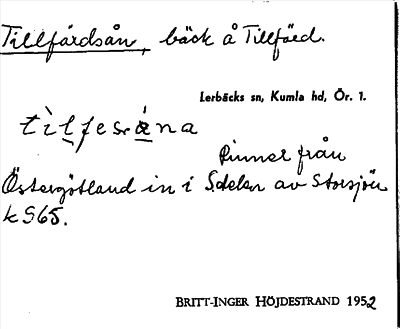 Tillfärdsån, bäck å Tillfärd.
Lerbäcks sn, Kumla hd, Ör. 1.
tìlfesạ́na
Rinner från
Östergötland in i S.delen av Storsjön
k S65.
BRITT-INGER HÖJDESTRAND 1952